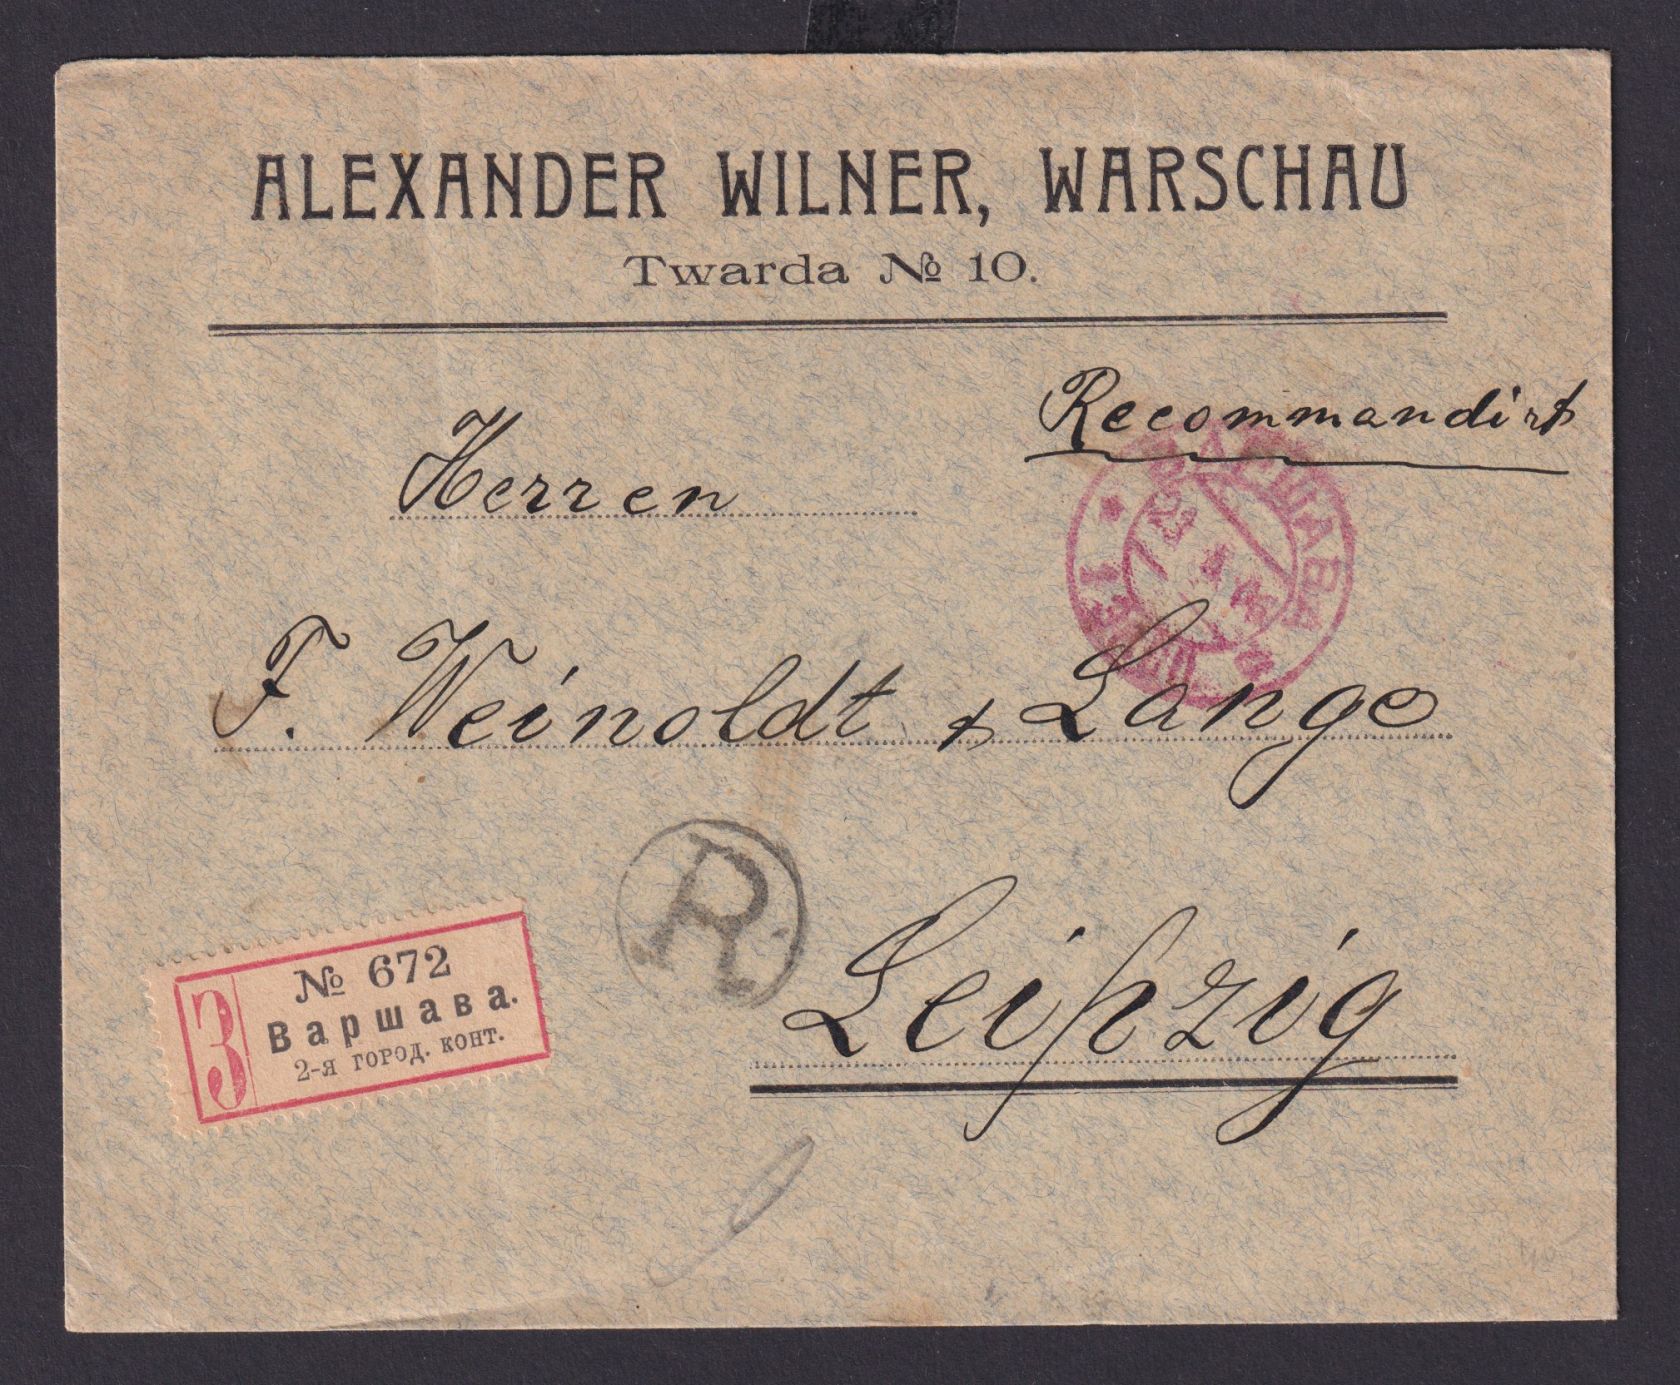 ALEXANDER WILNER, WARSCHAU
Twarda № 10.
Recommandirt
Herren
ВАРШАВА
F. Weinoldt & Lange
R
Leipzig
З
№ 672
Варшава.
2-я город. конт.